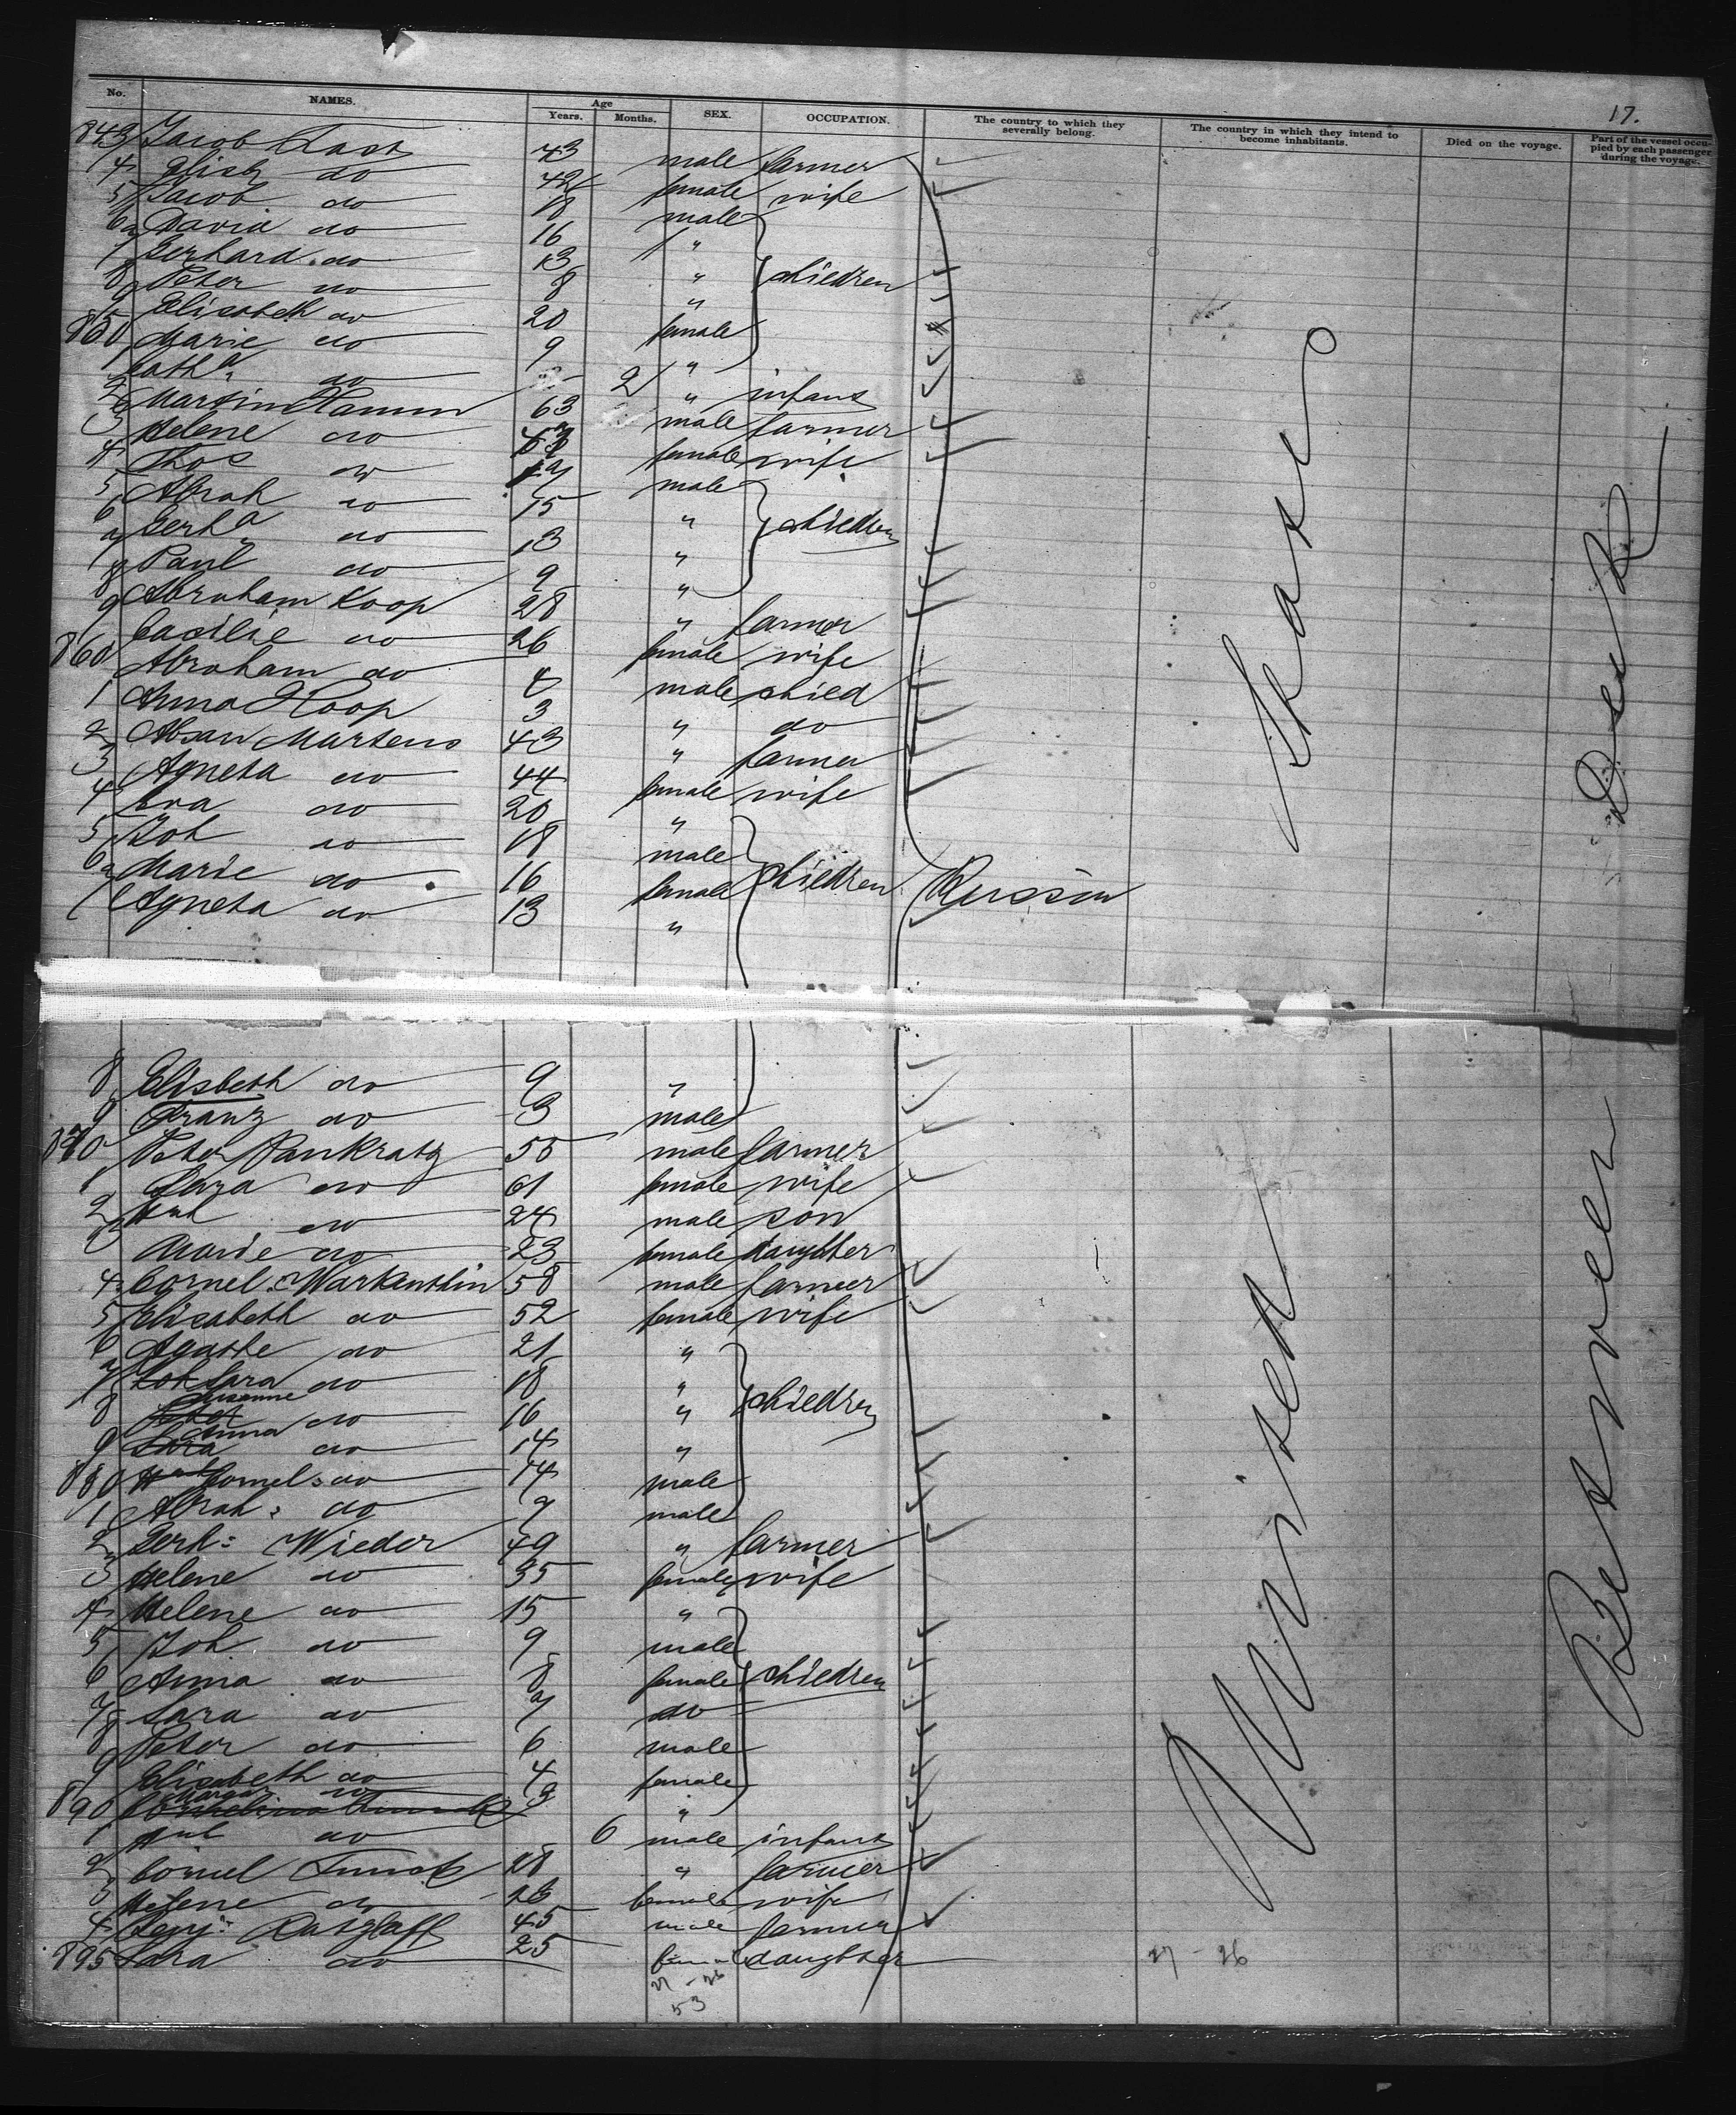 17.
No. NAMES. Age Years. Months. SEX. OCCUPATION. The country to which they severally belong. The country in which they intend to become inhabitants. Died on the voyage. Part of the vessel occupied by each passenger during the voyage.
843 Jacob Fast 43 male farmer
4 Elisb do 42 female wife
5 Jacob do 18 male
6 David do 16 "
7 Gerhard do 13 "
8 Peter do 8 "
9 Elisabeth do 20 female
850 Marie do 9 "
1 Cath: do 2 " infant
2 Martin Hamm 63 male farmer
3 Helene do female wife
4 Thos do 19 male
5 Abrah do 15 "
6 Gerhd do 13 "
7 Paul do 9 "
8 Abraham Koop 28 " farmer
9 Cacilie do 26 female wife
860 Abraham do 4 male chield
1 Anna Koop 3 " do
2 Abrau Martens 43 " farmer
3 Agneta do 44 female wife
4 Eva do 20 "
5 Joh do 18 male
6 Marie do 16 female chiedren Russia
7 Agneta do 13 "
8 Elisbeth do 9 "
9 Franz do 3 male
870 Peter Pankratz 55 male farmer
1 Sara do 61 female wife
2 do 24 male son
3 Marie do 23 female daughter
4 Cornel: Warkenthin 58 male farmer
5 Elisabeth do 52 female wife
6 Agathe do 21 "
7 Sara do 18 "
8 Susanne do 16 "
9 Anna do 14 "
880 Cornel: do 14 male
1 Abrah: do 9 male
2 Gerh: Wieder 49 " farmer
3 Helene do 35 female wife
4 Helene do 15 "
5 Joh do 9 male
6 Anna do 8 female chiedren
7 Sara do 7 do
8 Peter do 6 male
9 Elisabeth do 4 female
890 Margar do 3 "
1 do 6 male infant
2 Cornel 28 " farmer
3 Helene do 26 female wife
4 Benj: Ratzlaff 45 male farmer
895 Sara do 25 female daughter
27 - 26
53
27 - 26
United States
Between Deck